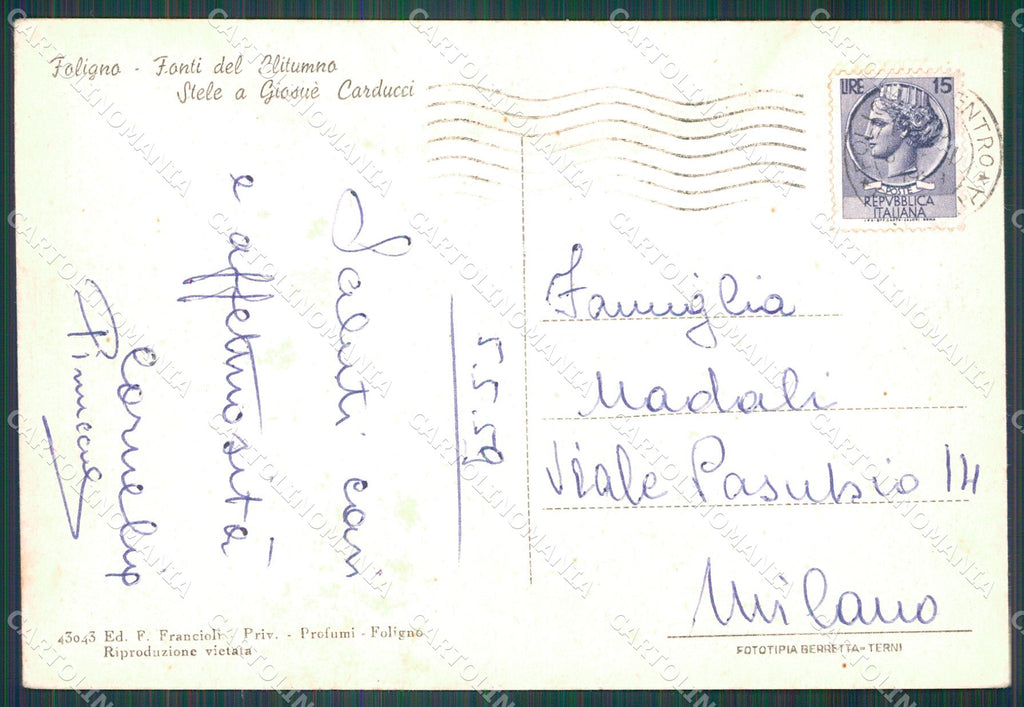 Foligno - Fonti del Clitumno
Stele a Giosuè Carducci
LIRE 15
POSTE
REPVBBLICA
ITALIANA
ENTRO
5.5.59
Saluti cari
e affettuosità
Famiglia
Madali
Viale Pasubio 14
Milano
43043 Ed. F. Francioli - Priv. - Profumi - Foligno
Riproduzione vietata
FOTOTIPIA BERRETTA - TERNI
CARTOLINOMANIA